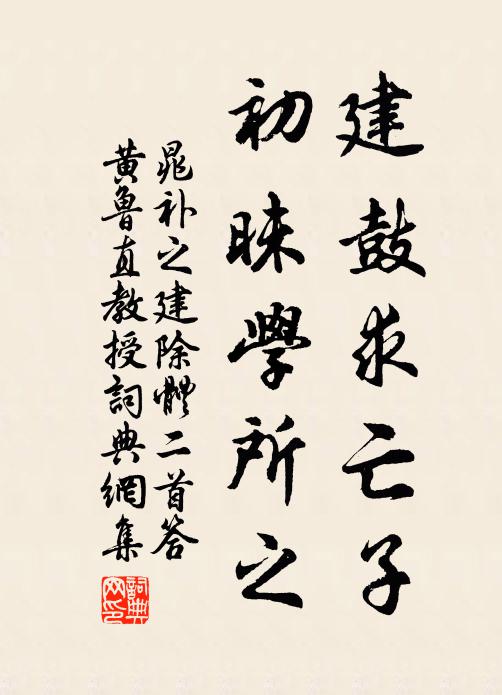 建鼓求亡子
初昧學所之
晁补之建除體二首答
黄魯直教授詞典網集
詞典网印